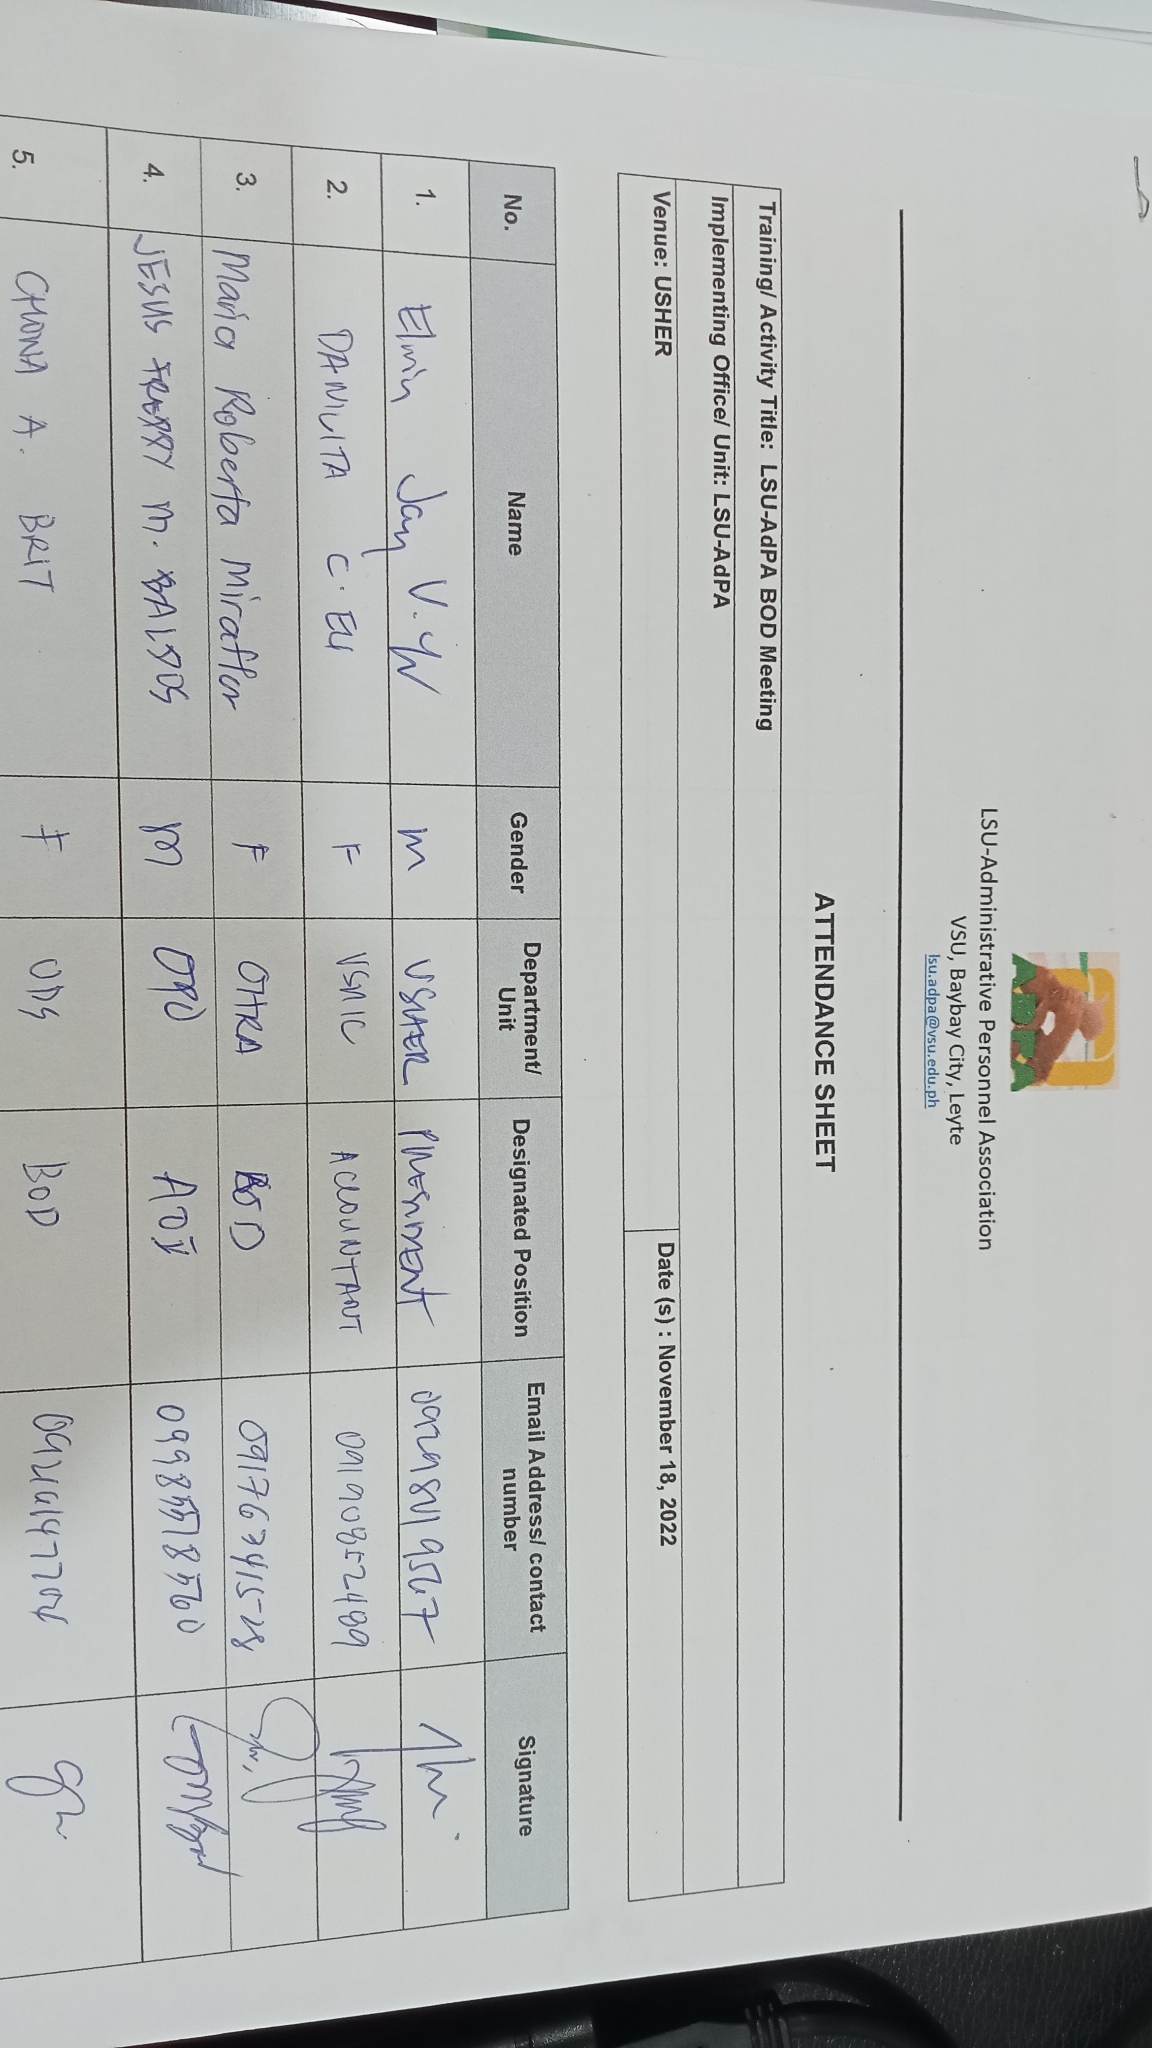 LSU-Administrative Personnel Association
VSU, Baybay City, Leyte
lsu.adpa@vsu.edu.ph
ATTENDANCE SHEET
Training/ Activity Title: LSU-AdPA BOD Meeting
Implementing Office/ Unit: LSU-AdPA
Venue: USHER Date (s) : November 18, 2022
No. Name Gender Department/ Unit Designated Position Email Address/ contact number Signature
1. Elwin Jay V. Yu M USHER PRESIDENT
2. DANILITA C. F VSUIC ACCOUNTANT 09190852489
3. Maria Roberta Miraflor F OHRA BOD
4. JESUS FREDDY M. BALDOS M OPO 09985578560
5. CHONA A. BRIT F ODS BOD